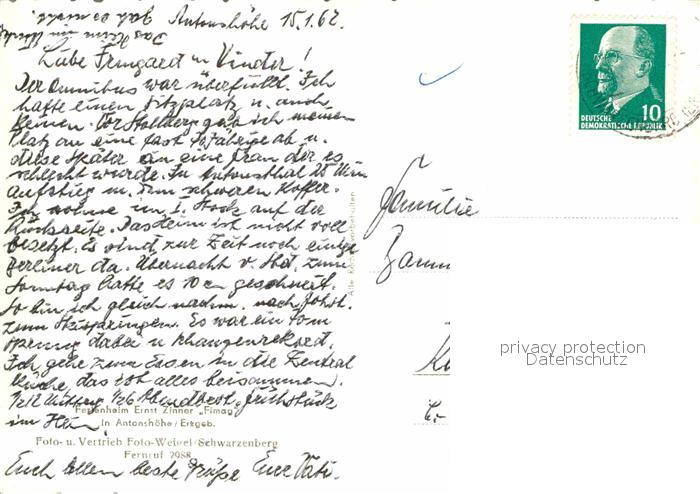 Das Heim im
Antonshöhe 15.1.62.
Liebe Irmgard u Kinder!
Der Omnibus war überfüllt. Ich
hatte einen Sitzplatz u. auch
keinen. Vor Stollberg gab ich meinen
Platz an eine fast 70 jährige ab u.
diese später an eine Frau der es
schlecht wurde. In Antonsthal 25 Min
Aufstieg m. dem schweren Koffer.
Ich wohne im I. Stock auf der
Rückseite. Das Heim ist nicht voll
besetzt. Es sind zur Zeit noch einige
Berliner da. Übernacht v. Sbd. zum
Sonntag hatte es 10 cm geschneit.
So bin ich gleich nachm. nach Johst.
zum Skispringen. Es war ein Tom
sprung dabei u Schanzenrekord.
Ich gehe zum Essen in die Zentral
küche, das ist alles beisammen.
1/2 12 Mittag 1/2 6 Abendbrot, Frühstück
im Heim.
Ferienheim Ernst Zinner „Fimag"
in Antonshöhe/Erzgeb.
Foto- u. Vertrieb Foto-Weigel/Schwarzenberg
Fernruf 2988
Euch allen beste Grüße Euer Vati.
Alle Rechte vorbehalten
10
DEUTSCHE
DEMOKRATISCHE REPUBLIK
Familie
privacy protection
Datenschutz